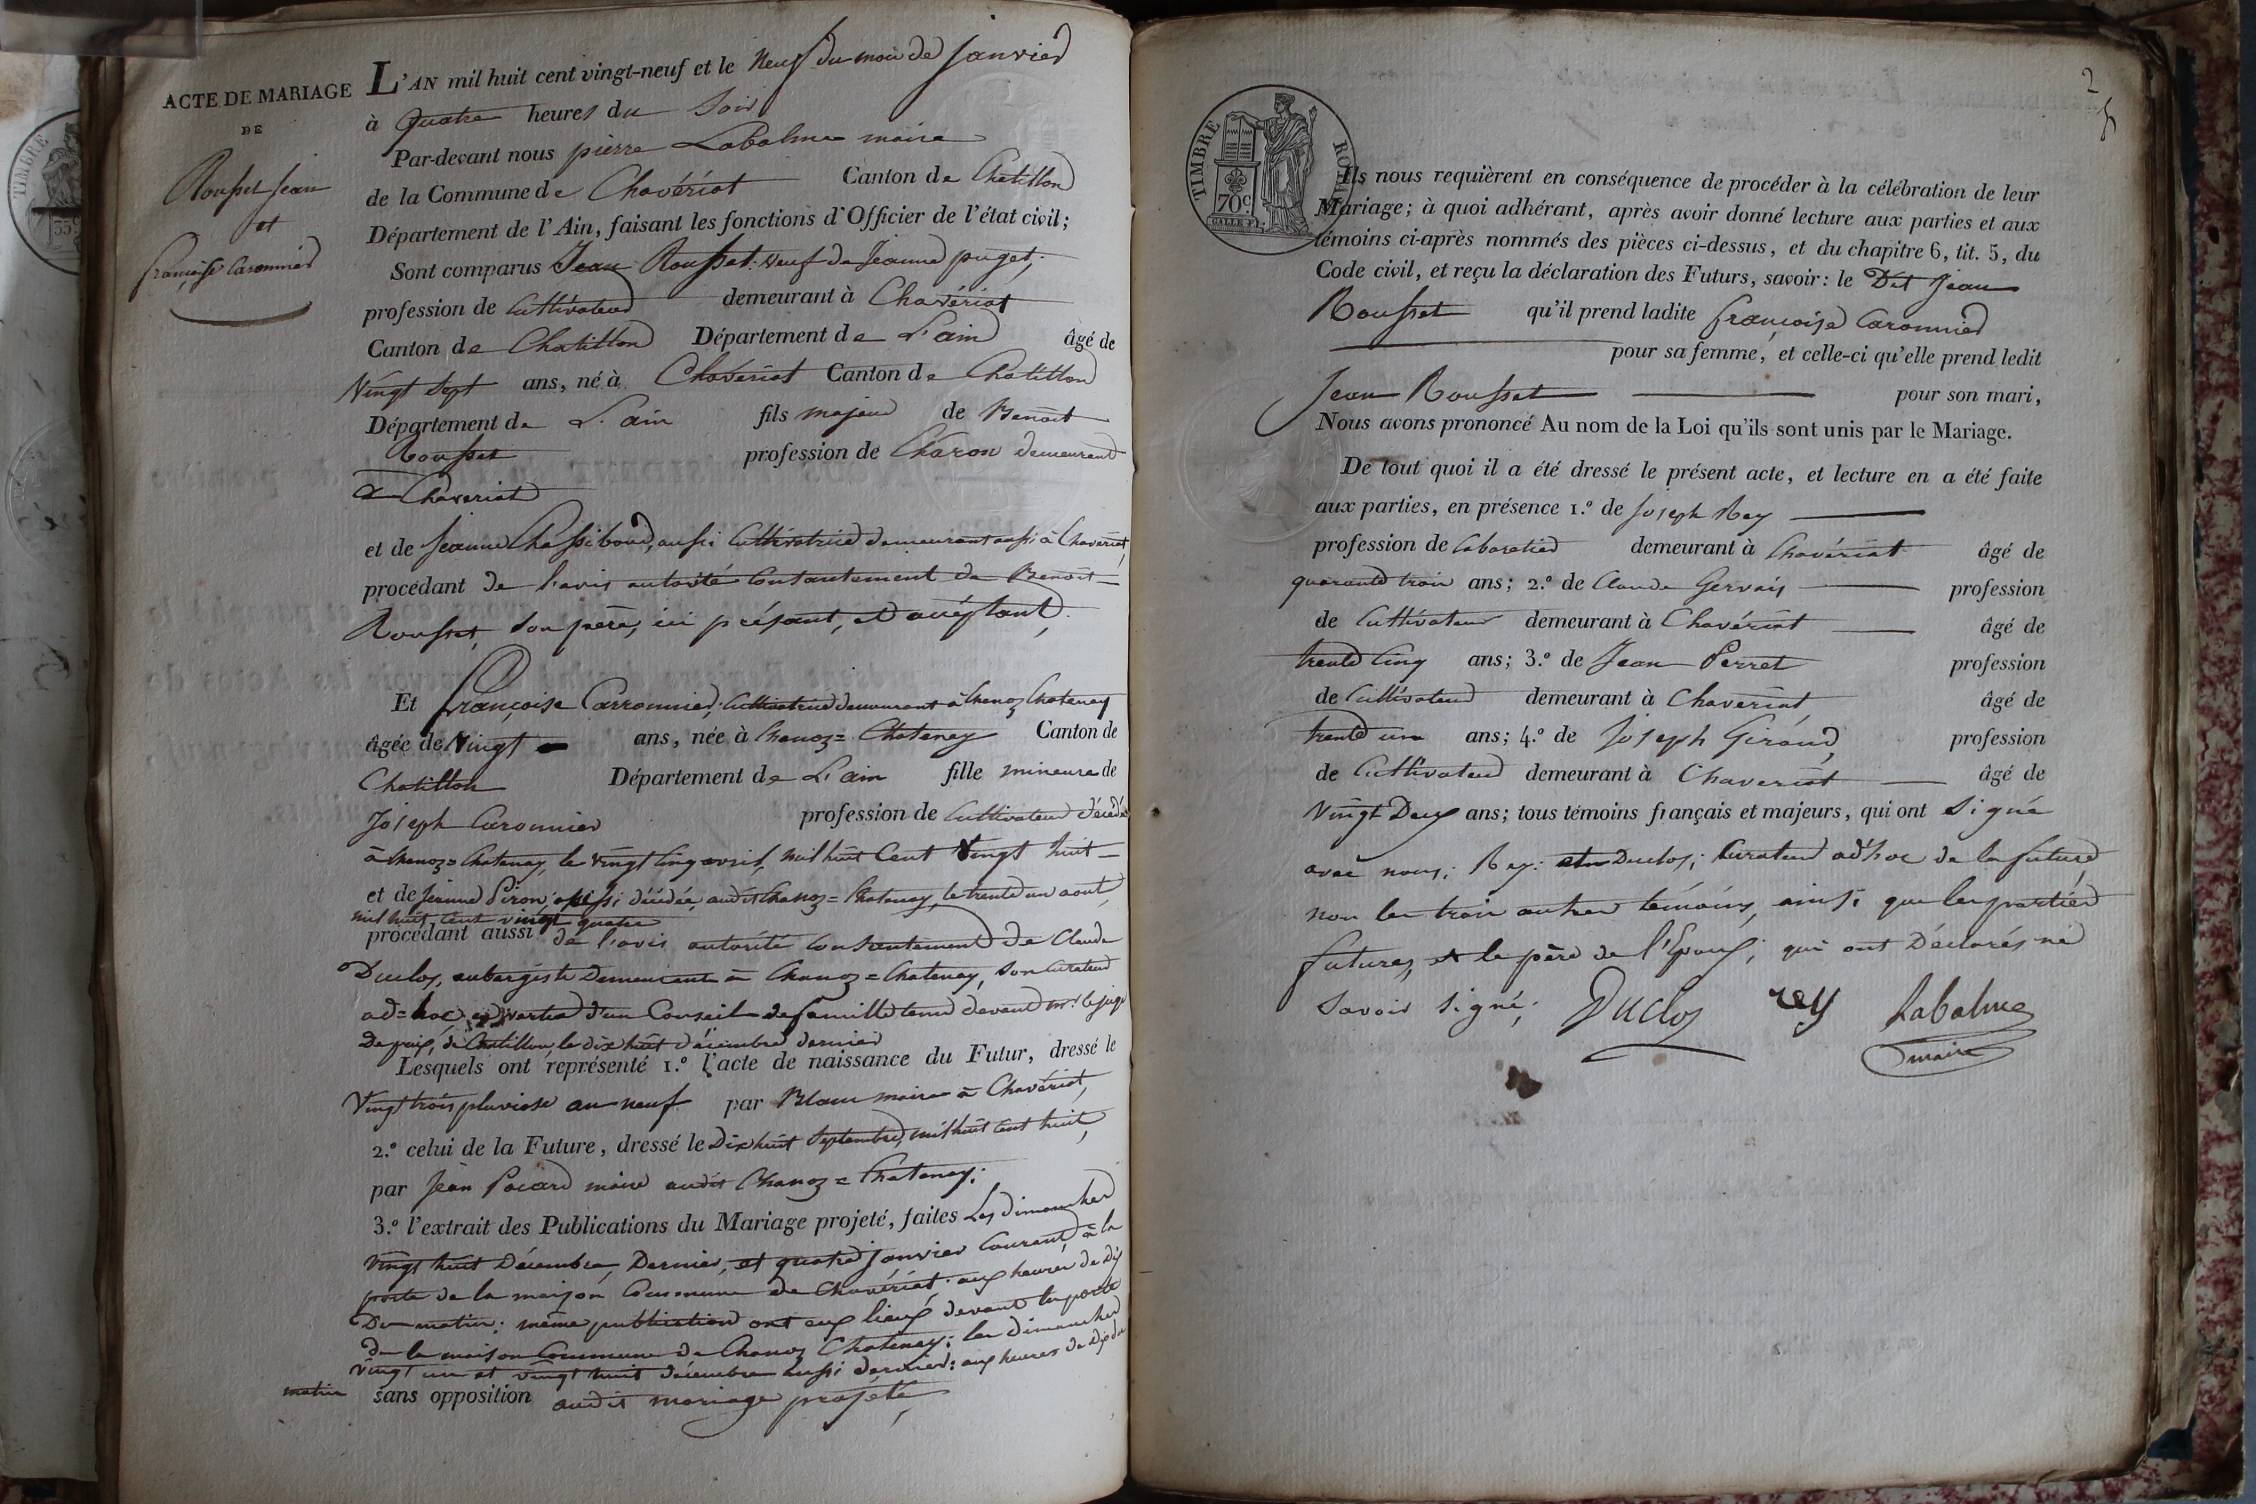 ACTE DE MARIAGE
DE
Rousset Jean
et
françoise Caronnier
TIMBRE
35c
L'AN mil huit cent vingt-neuf et le Neuf du mois de Janvier
à Quatre heures du Soir
Par-devant nous pierre Labalme maire
de la Commune de Chavériat Canton de Chatillon
Département de l'Ain, faisant les fonctions d'Officier de l'état civil;
Sont comparus Jean Rousset: veuf de Jeanne puget,
profession de Cultivateur demeurant à Chavériat
Canton de Chatillon Département de L'ain âgé de
Vingt Sept ans, né à Chavériat Canton de Chatillon
Département de L'ain fils majeur de Benoit
Rousset profession de Charon demeurant
a Chaveriat
et de Jeanne aussi Cultivatrice demeurant aussi à Chaveriat,
procédant de l'avis autorité Contantement de Benoit
Rousset, Son père, ici présent, et acceptant,
Et françoise Carronnier, Cultivatrice demeurant à Chanoz Chatenay
âgée de Vingt ans, née à Chanoz= Chatenay Canton de
Chatillon Département de L'ain fille mineure de
Joseph Caronnier profession de Cultivateur décédé
à Chanoz= Chatenay, le vingt Cinq avril, mil huit Cent Vingt huit
et de Jeanne Piron, aussi décédée, audit Chanoz= Chatenay, le trente un aout,
mil huit cent vingt quatre
procédant aussi de l'avis autorité Consentement de Claude
Duclos, aubergiste Demeurant à Chanoz=Chatenay, Son Curateur
ad=hoc en vertu d'un Conseil de famille tenu devant mr. le juge
De paix, de Chatillon, le dix huit décembre dernier
Lesquels ont représenté 1.º l'acte de naissance du Futur, dressé le
Vingt trois pluviose an neuf par Blanc maire à Chavériat,
2.º celui de la Future, dressé le Dix huit Septembre, mil huit cent huit,
par Jean Pocard maire audit Chanoz= Chatenay;
3.º l'extrait des Publications du Mariage projeté, faites Les dimanches
vingt huit Décembre, Dernier, et quatre janvier Courant, à la
porte de la maison Commune de Chavériat. aux heures de dix
Du matin; même publication ont eux lieux devant la porte
de la maison Commune de Chanoz Chatenay; les dimanches
vingt un et vingt huit décembre aussi dernier: aux heures de dix du
matin sans opposition audit mariage projeté,
2
TIMBRE ROYAL
70c.
Ils nous requièrent en conséquence de procéder à la célébration de leur
Mariage; à quoi adhérant, après avoir donné lecture aux parties et aux
témoins ci-après nommés des pièces ci-dessus, et du chapitre 6, tit. 5, du
Code civil, et reçu la déclaration des Futurs, savoir: le Dit Jean
Rousset qu'il prend ladite françoise Caronnier
pour sa femme, et celle-ci qu'elle prend ledit
Jean Rousset pour son mari,
Nous avons prononcé Au nom de la Loi qu'ils sont unis par le Mariage.
De tout quoi il a été dressé le présent acte, et lecture en a été faite
aux parties, en présence 1.º de Joseph Rey
profession de Cabaretier demeurant à Chavériat âgé de
quarante trois ans; 2.º de Claude Gervais profession
de Cultivateur demeurant à Chavériat âgé de
trente Cinq ans; 3.º de Jean Perret profession
de Cultivateur demeurant à Chaveriat âgé de
trente un ans; 4.º de Joseph Giraud profession
de Cultivateur demeurant à Chaveriat âgé de
Vingt Deux ans; tous témoins français et majeurs, qui ont Signé
avec nous; Rey: Duclos; Curateur ad'hoc de la future,
non les trois autres témoins, ainsi que les parties
futures, et le père de l'Epoux; qui ont Déclarés ne
Savoir Signé; Duclos rey Labalme
maire